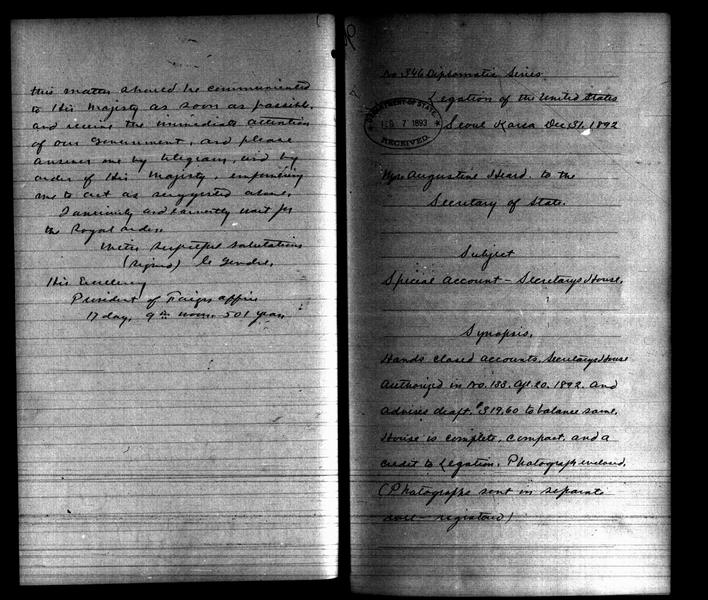 this matter should be communicated
to His Majesty as soon as possible,
and receive the immediate attention
of our Government, and please
answer me by telegram, and by
order of His Majesty, empowering
me to act as suggested above.
I anxiously and earnestly wait for
the Royal orders.
With respectful salutations
(signed) Le Gendre.
His Excellency
President of Foreign Office
17 day, 9th moon, 501 year
No. 346 Diplomatic Series.
Legation of the United States
Seoul Korea Dec 31. 1892
DEPARTMENT OF STATE
FEB 7 1893
RECEIVED
Augustine Heard to the
Secretary of State.
Subject
Special Account - Secretarys House.
Synopsis.
Hands closed accounts, Secretarys House
Authorized in No. 133. Apl 20. 1892. and
advises draft, $319.60 to balance same.
House is complete, compact, and a
credit to Legation. Photograph enclosed.
(Photographs sent in separate
registered)